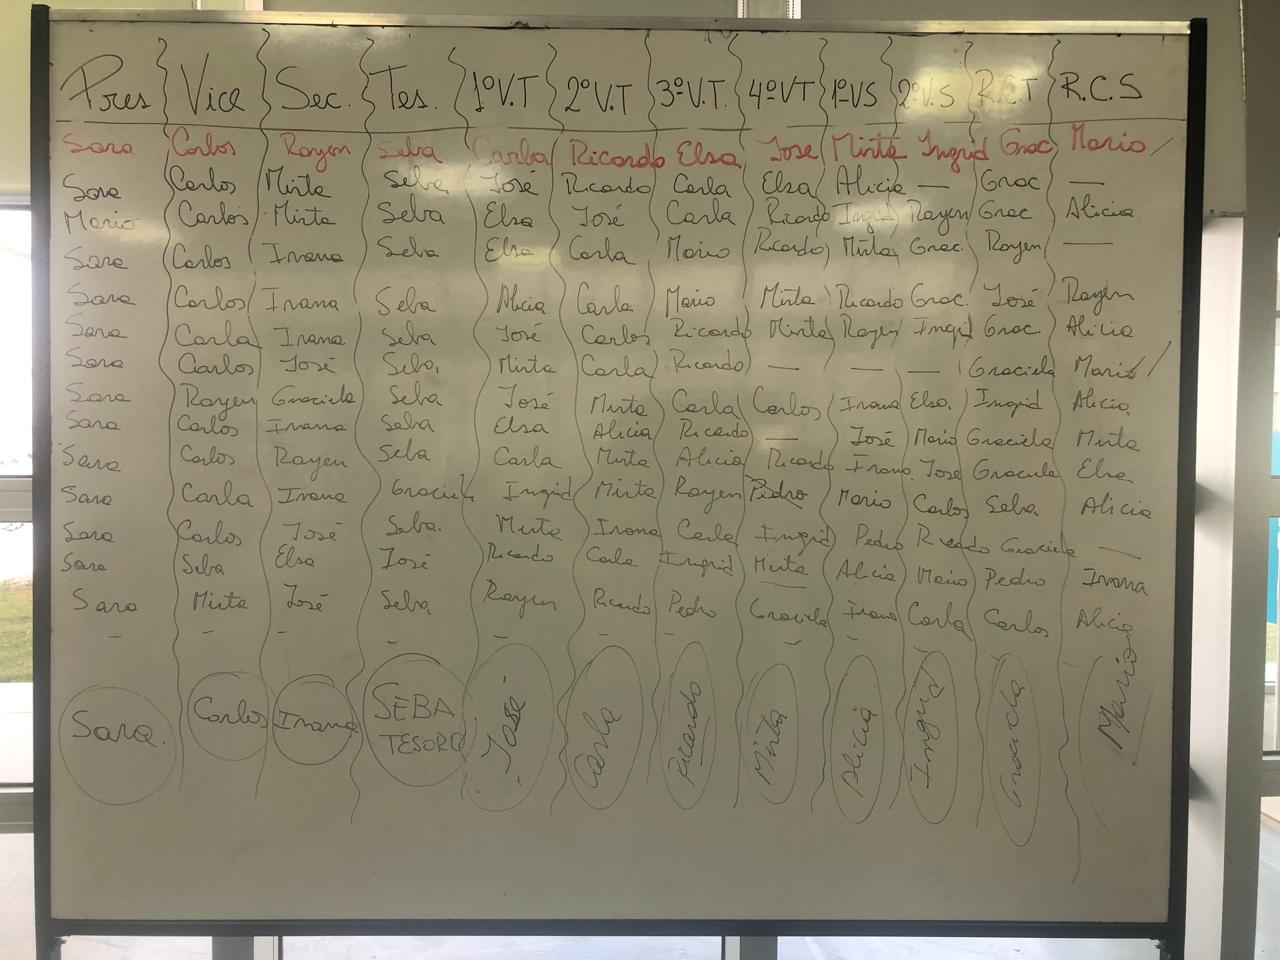 Pres Vice Sec. Tes. 1ºV.T 2ºV.T 3ºV.T. 4ºVT 1ºVS 2ºV.S R.C.T R.C.S
Sara Carlos Rayen Seba Carla Ricardo Elsa Jose Mirta Ingrid Grac Mario
Sara Carlos Mirta Seba José Ricardo Carla Elsa Alicia — Grac —
Mario Carlos Mirta Seba Elsa José Carla Ricardo Ingrid Rayen Grac Alicia
Sara Carlos Ivana Seba Elsa Carla Mario Ricardo Mirta Grac. Rayen —
Sara Carlos Ivana Seba Alicia Carla Mario Mirta Ricardo Grac. José Rayen
Sara Carla Ivana Seba José Carlos Ricardo Mirta Rayen Ingrid Grac Alicia
Sara Carlos José Seba. Mirta Carla Ricardo — — — Graciela Mario
Sara Rayen Graciela Seba José Mirta Carla Carlos Ivana Elsa. Ingrid Alicia
Sara Carlos Ivana Seba Elsa Alicia Ricardo — José Mario Graciela Mirta
Sara Carlos Rayen Seba Carla Mirta Alicia Ricardo Ivana José Graciela Elsa
Sara Carla Ivana Graciela Ingrid Mirta Rayen Pedro Mario Carlos Seba Alicia
Sara Carlos José Seba. Mirta Ivana Carla Ingrid Pedro Ricardo Graciela —
Sara Seba Elsa José Ricardo Carla Ingrid Mirta Alicia Mario Pedro Ivana
Sara Mirta José Seba Rayen Ricardo Pedro Graciela Ivana Carla Carlos Alicia
Sara. Carlos Ivana SEBA José Carla Ricardo Mirta Alicia Ingrid Graciela Mario
TESORO